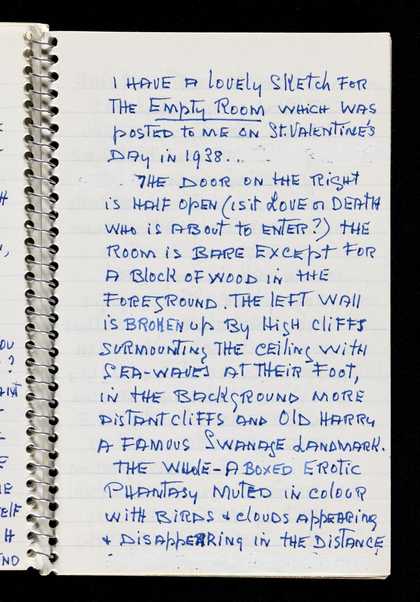 I HAVE A LOVELY SKETCH FOR
THE EMPTY ROOM WHICH WAS
POSTED TO ME ON ST. VALENTINE'S
DAY IN 1938...
THE DOOR ON THE RIGHT
IS HALF OPEN (IS IT LOVE OR DEATH
WHO IS ABOUT TO ENTER?) THE
ROOM IS BARE EXCEPT FOR
A BLOCK OF WOOD IN THE
FOREGROUND. THE LEFT WALL
IS BROKEN UP BY HIGH CLIFFS
SURMOUNTING THE CEILING WITH
SEA-WAVES AT THEIR FOOT,
IN THE BACKGROUND MORE
DISTANT CLIFFS AND OLD HARRY
A FAMOUS SWANAGE LANDMARK.
THE WHOLE - A BOXED EROTIC
PHANTASY MUTED IN COLOUR
WITH BIRDS & CLOUDS APPEARING
& DISAPPEARING IN THE DISTANCE